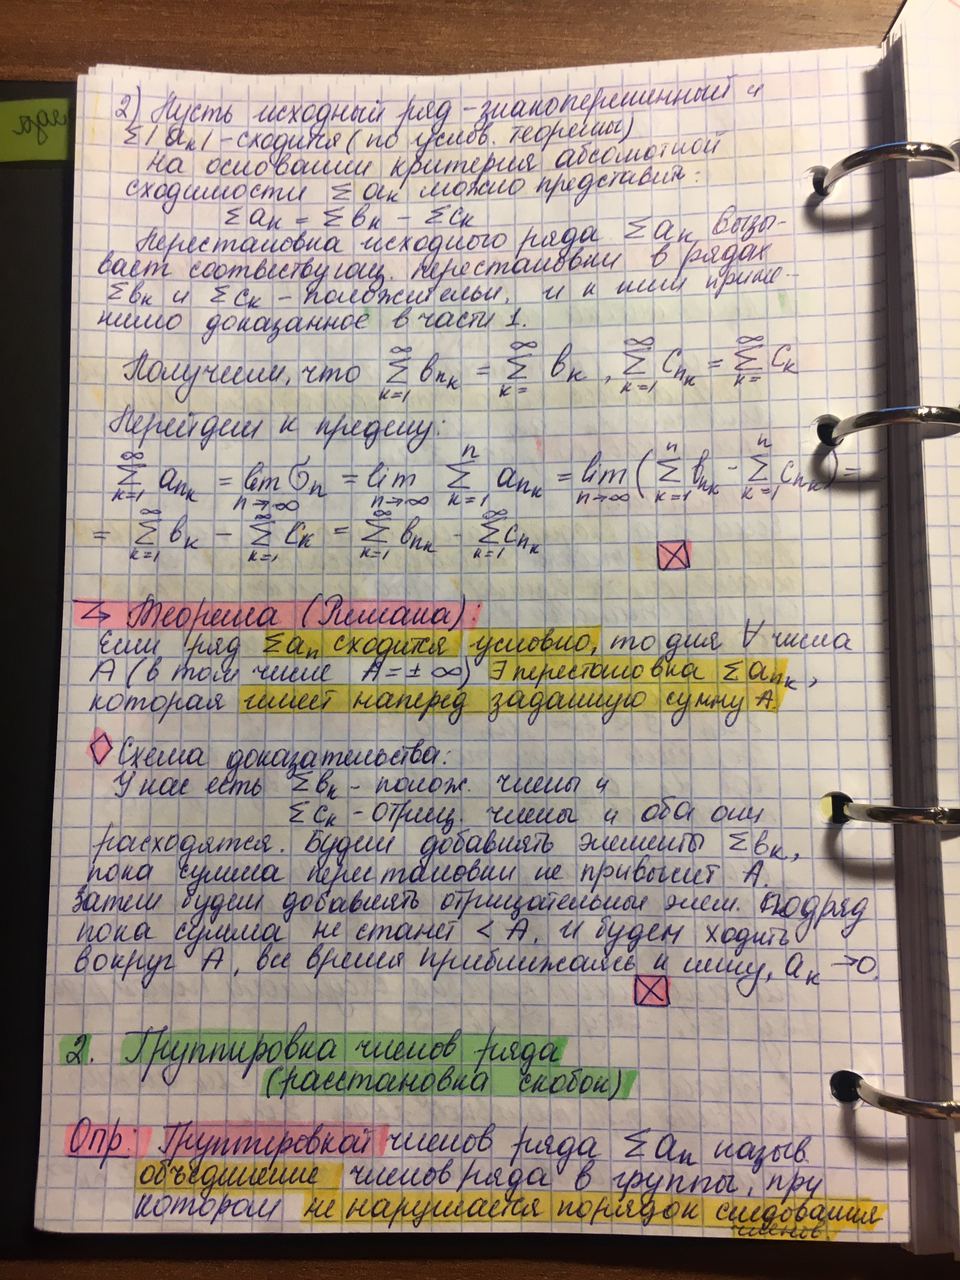 2) Пусть исходный ряд - знакопеременный и
Σ|aₙ| - сходится (по услов. теоремы)
На основании критерия абсолютной
сходимости Σaₙ можно представить:
Σaₙ = Σвₖ - Σcₖ
Перестановка исходного ряда Σaₙ вызы-
вает соотвествующ. перестановки в рядах
Σвₖ и Σcₖ - положительн, и к ним приме-
нимо доказанное в части 1.
Получим, что ∑_{k=1}^{∞} в_{n_k} = ∑_{k=}^{∞} в_k , ∑_{k=1}^{∞} c_{n_k} = ∑_{k=}^{∞} c_k
Перейдем к пределу:
∑_{k=1}^{∞} a_{n_k} = lim_{n→∞} σ_n = lim_{n→∞} ∑_{k=1}^{n} a_{n_k} = lim_{n→∞} (∑_{k=1}^{n} в_{n_k} - ∑_{k=1}^{n} c_{n_k}) =
= ∑_{k=1}^{∞} в_k - ∑_{k=1}^{∞} c_k = ∑_{k=1}^{∞} в_{n_k} - ∑_{k=1}^{∞} c_{n_k}
Теорема (Римана):
Если ряд Σaₙ сходится условно, то для ∀ числа
A (в том числе A = ± ∞) ∃ перестановка Σa_{n_k},
которая имеет наперед заданную сумму A.
Схема доказательства:
У нас есть Σвₖ - полож. члены и
Σcₖ - отриц. члены и оба они
расходятся. Будем добавлять элементы Σвₖ,
пока сумма перестановки не привысит A.
Затем будем добавлять отрицательные элем. подряд
пока сумма не станет < A. И будем ходить
вокруг A, все время приближаясь к нему, aₖ → 0.
2. Группировка членов ряда
(расстановка скобок)
Опр: Группировкой членов ряда Σaₙ назыв.
объединение членов ряда в группы, при
котором не нарушается порядок следования
членов.